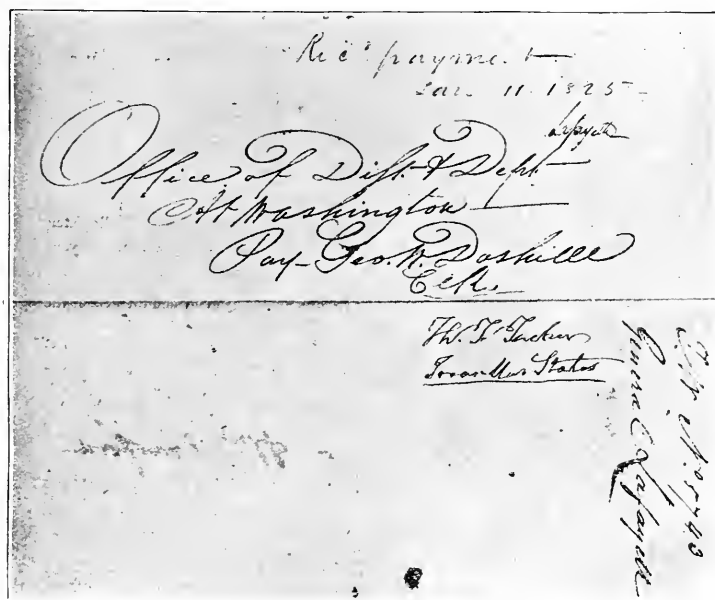 Rec'd payment
Jan. 11 1825
Lafayette
Office of Dist. & Dept.
At Washington
Pay Geo. W. Dashiell
Th. T. Tucker
General Lafayette